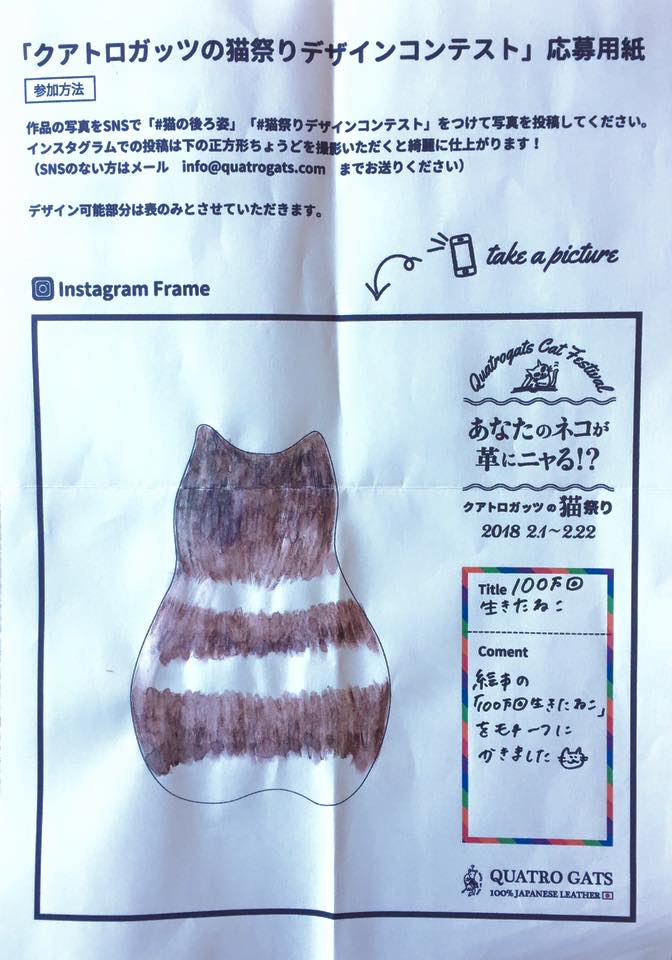 「クアトロガッツの猫祭りデザインコンテスト」応募用紙
参加方法
作品の写真をSNSで「#猫の後ろ姿」「#猫祭りデザインコンテスト」をつけて写真を投稿してください。
インスタグラムでの投稿は下の正方形ちょうどを撮影いただくと綺麗に仕上がります！
（SNSのない方はメール　info@quatrogats.com　までお送りください）
デザイン可能部分は表のみとさせていただきます。
take a picture
Instagram Frame
Quatrogats Cat Festival
あなたのネコが
革にニャる!?
クアトロガッツの猫祭り
2018 2.1〜2.22
Title 100万回
生きたねこ
Coment
絵本の
「100万回生きたねこ」
をモチーフに
かきました
QUATRO GATS
100% JAPANESE LEATHER